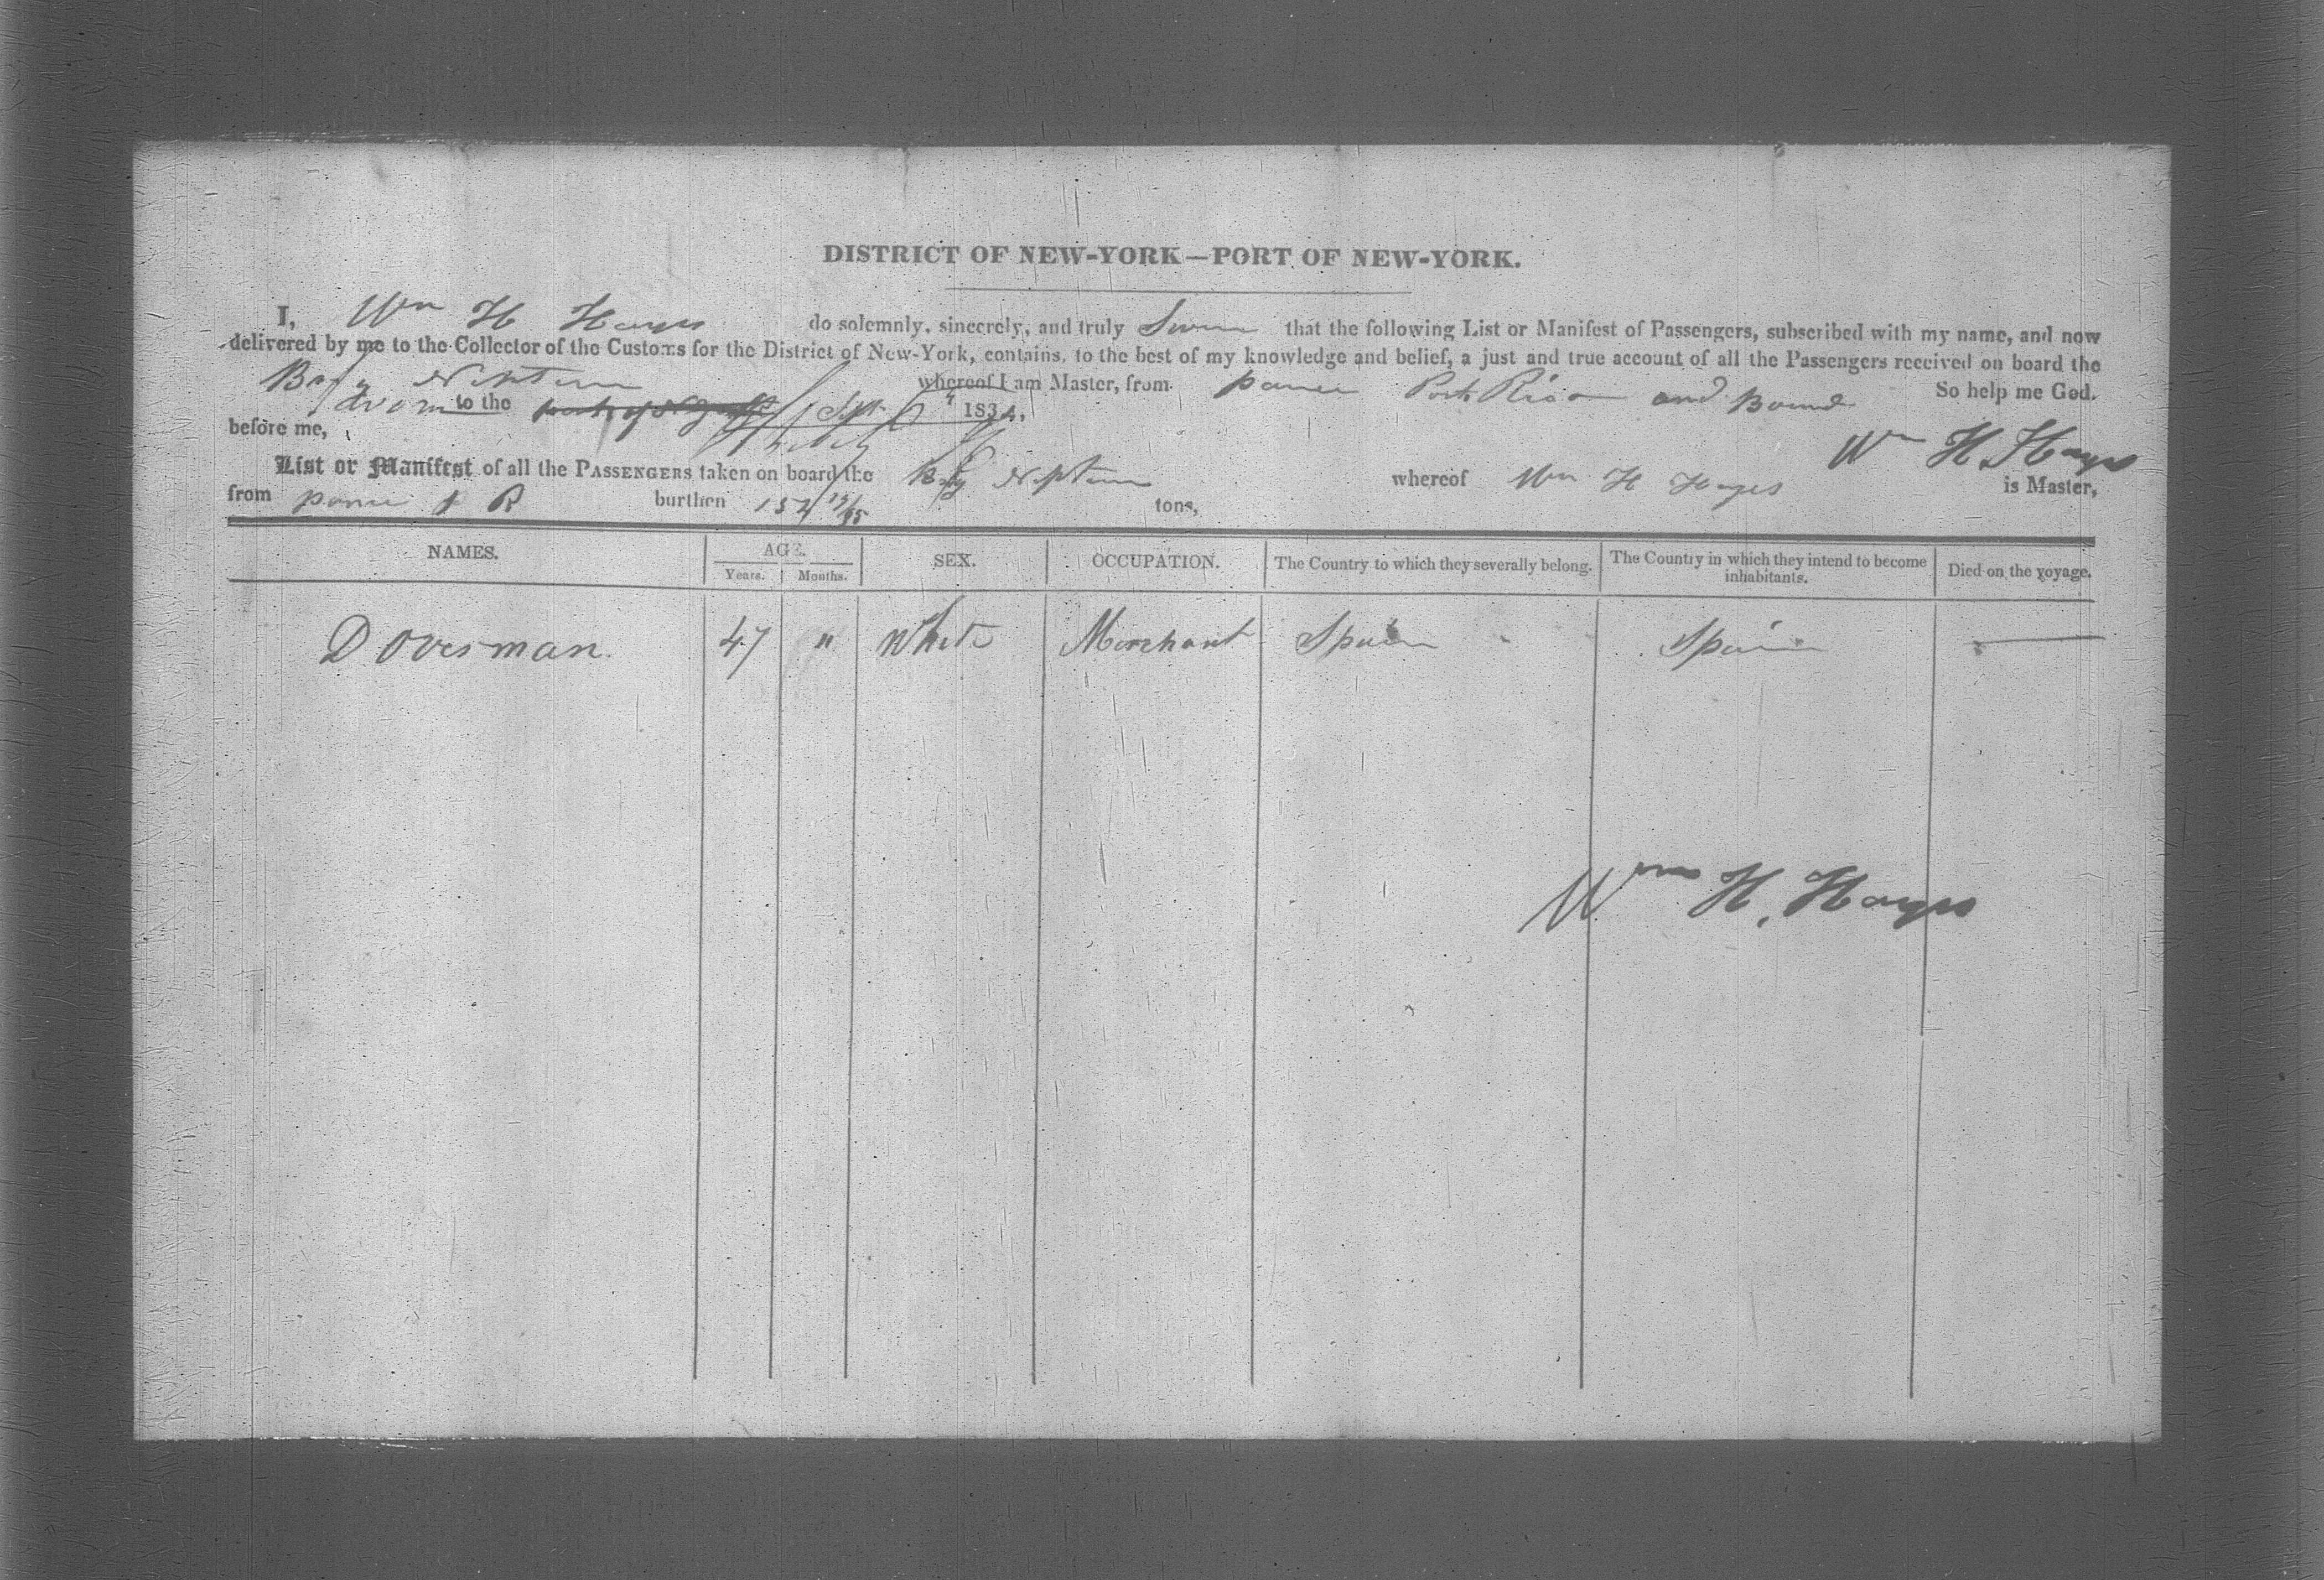 DISTRICT OF NEW-YORK—PORT OF NEW-YORK.
I, Wm H Hayes do solemnly, sincerely, and truly Swear that the following List or Manifest of Passengers, subscribed with my name, and now
delivered by me to the Collector of the Customs for the District of New-York, contains, to the best of my knowledge and belief, a just and true account of all the Passengers received on board the
Brig Neptune whereof I am Master, from Ponce Porto Rico and Bound So help me God.
to the Sept 6 1834.
before me,
Wm H Hayes
List or Manifest of all the PASSENGERS taken on board the Brig Neptune whereof Wm H Hayes is Master,
from Ponce P R burthen tons,
NAMES. AGE. SEX. OCCUPATION. The Country to which they severally belong. The Country in which they intend to become inhabitants. Died on the voyage.
Years. Months.
D Overman 47 " White Merchant Spain Spain —
Wm H. Hayes